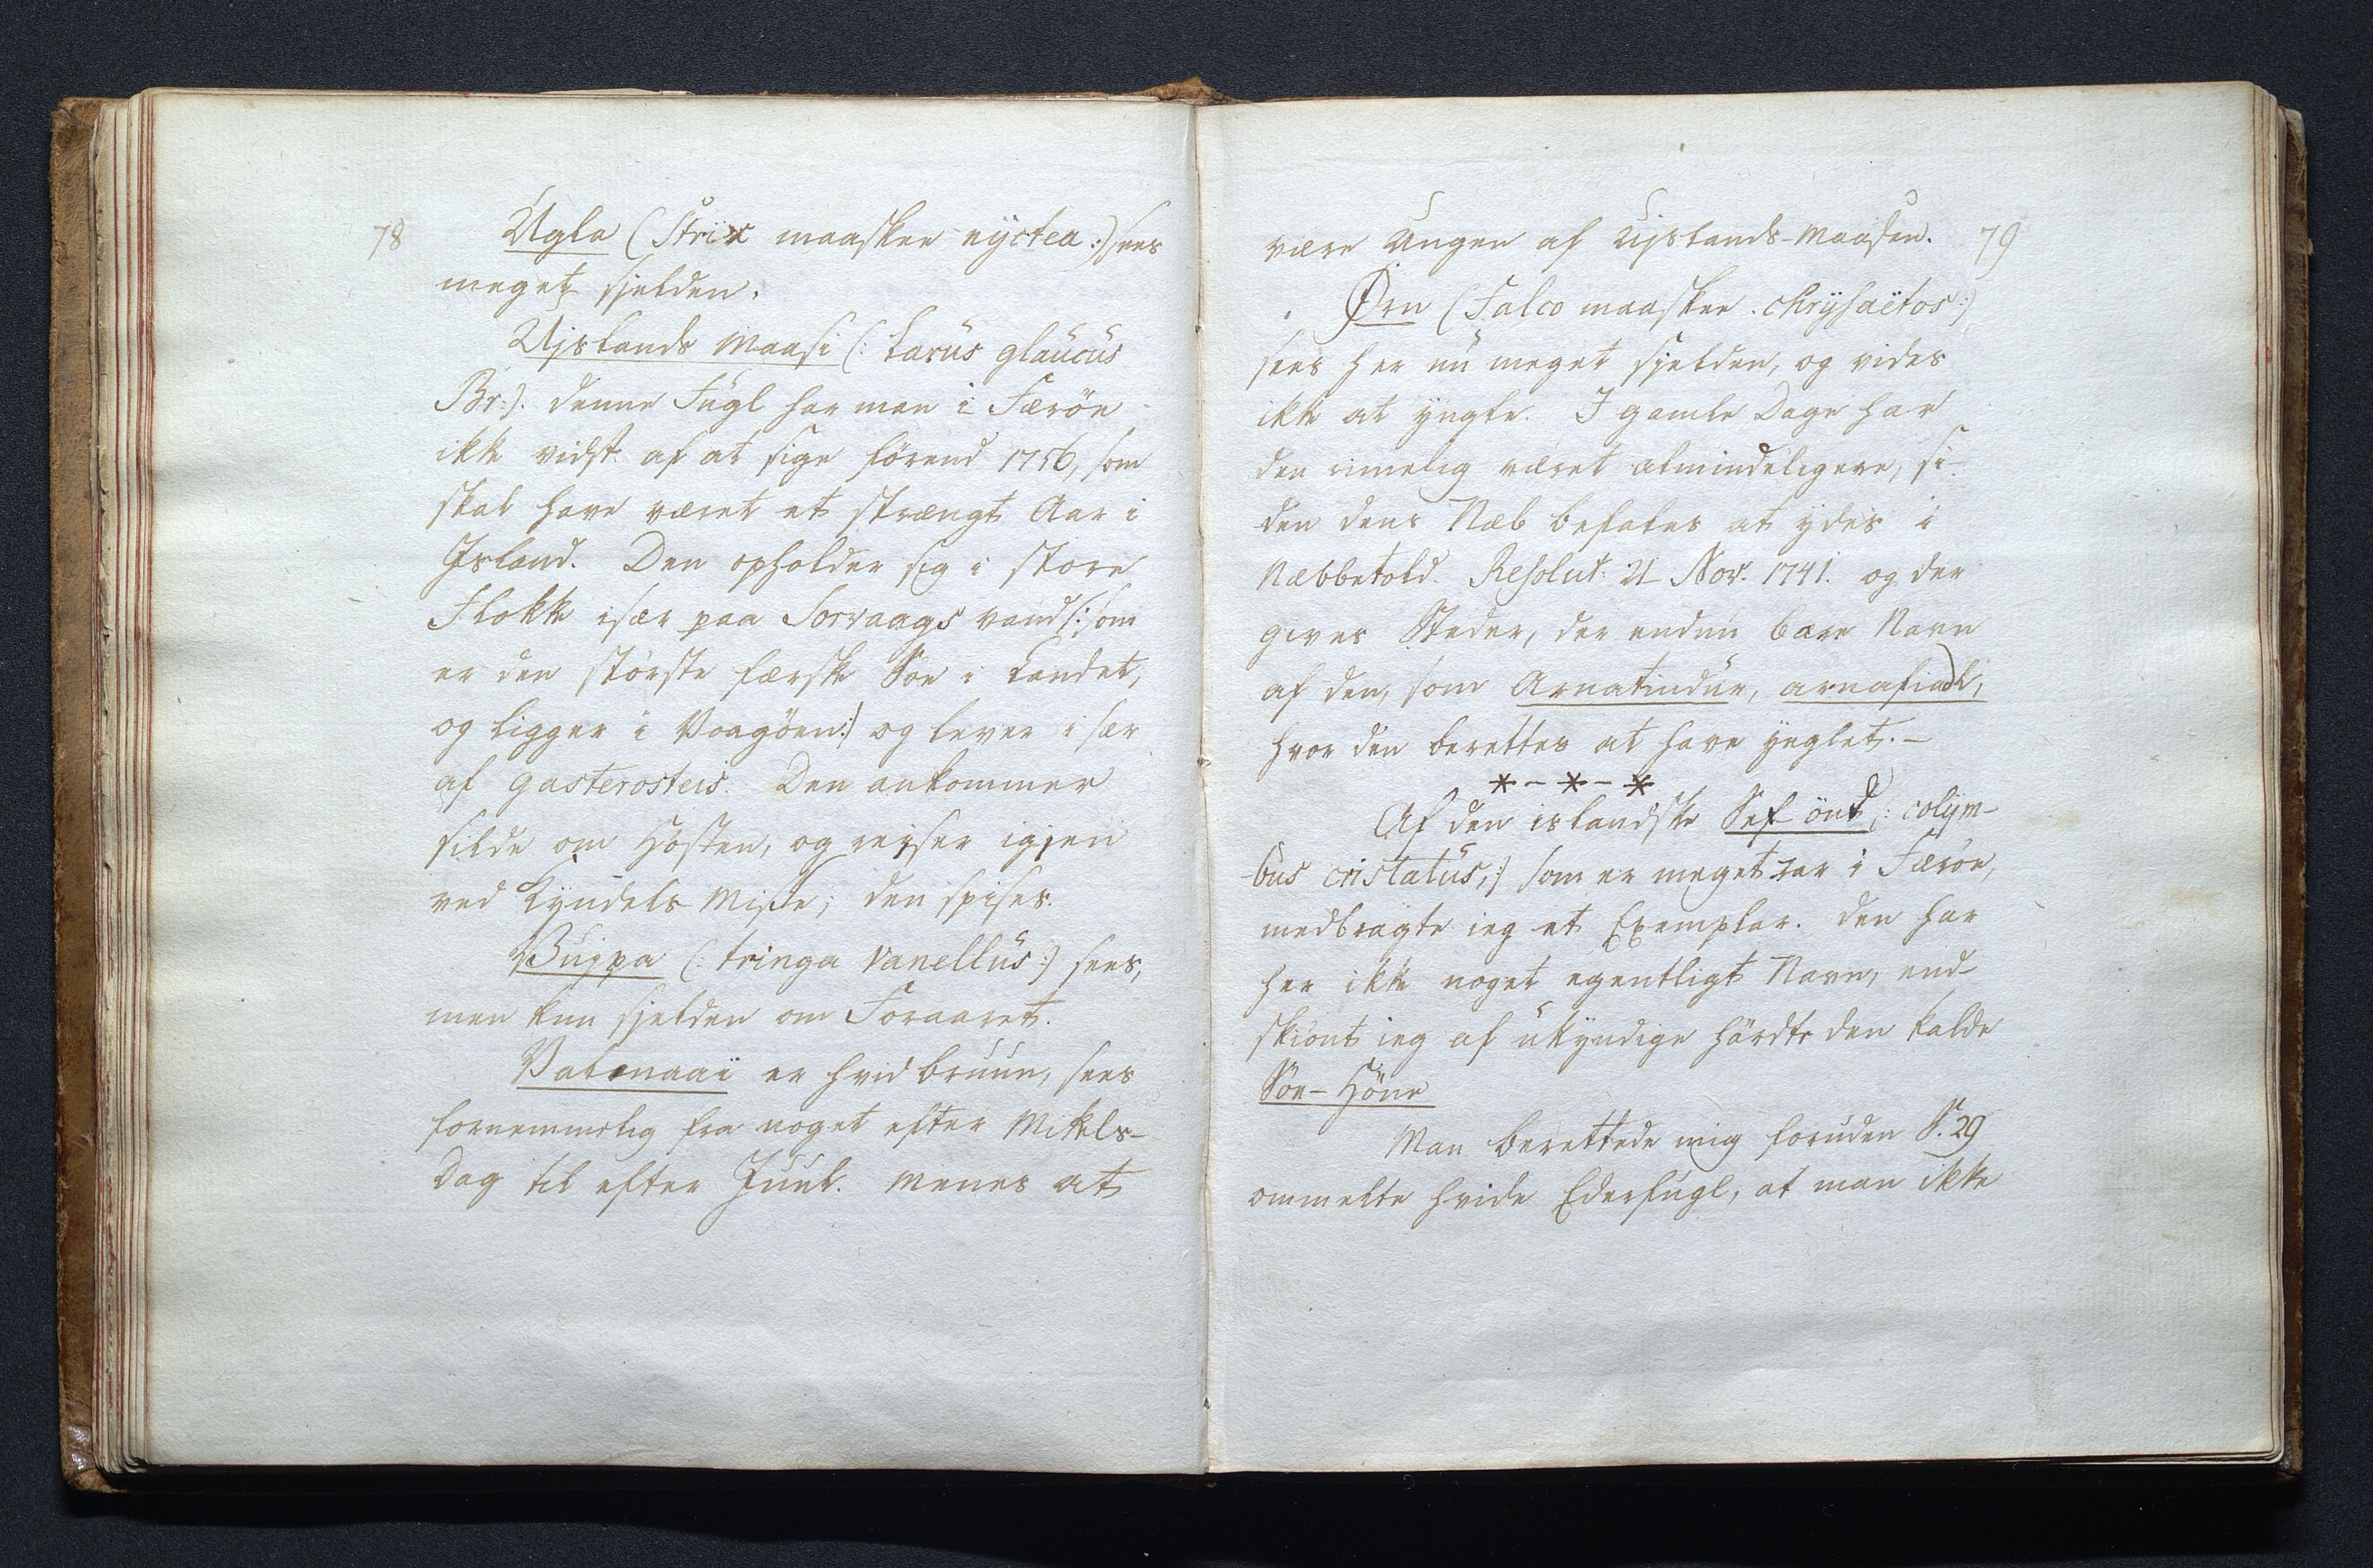 78
Ugla (Strix maaskee nyctea:) sees
meget sjelden.
Ujslands Maasi (: Larus glaucus
Br:). denne Fugl har man i Færöe
ikke vidst af at sige förend 1756, som
skal have været et strængt Aar i
Island. Den opholder sig i store
Flokke især paa Sorvaags vand (: som
er den störste færske Söe i Landet,
og ligger i Vaagöen:) og lever i sær
af gasterosteis. Den ankommer
silde om Hösten, og rejser igjen
ved Kyndels Misse; den spises.
Vujpa (: tringa vanellus:) sees,
men kun sjelden om Foraaret.
Valenaai er hvid bruun, sees
fornemmelig fra noget efter Mikels-
Dag til efter Juul. menes at
79
være Ungen af Ujslands-Maasen.
Örn (Falco maaskee chrysaëtos:)
sees her nu meget sjelden, og vides
ikke at yngle. I gamle Dage har
den rimelig været almindeligere, si-
den dens Næb befales at ydes i
Næbbetold. Resolut: 21 Nov. 1741. og der
gives Steder, der endnu bære Navn
af den, som Arnatindur, arnafiadl,
hvor den berettes at have ynglet. -
* - * - *
Af den islandske Sef önd (: colym-
bus cristatus,:) som er meget rar i Færöe,
medbragte ieg et Exemplar. den har
her ikke noget egentligt Navn, end-
skiönt ieg af ukyndige hördte den kalde
Söe-Höne
Man berettede mig foruden S. 29
ommelte hvide Ederfugl, at man ikke